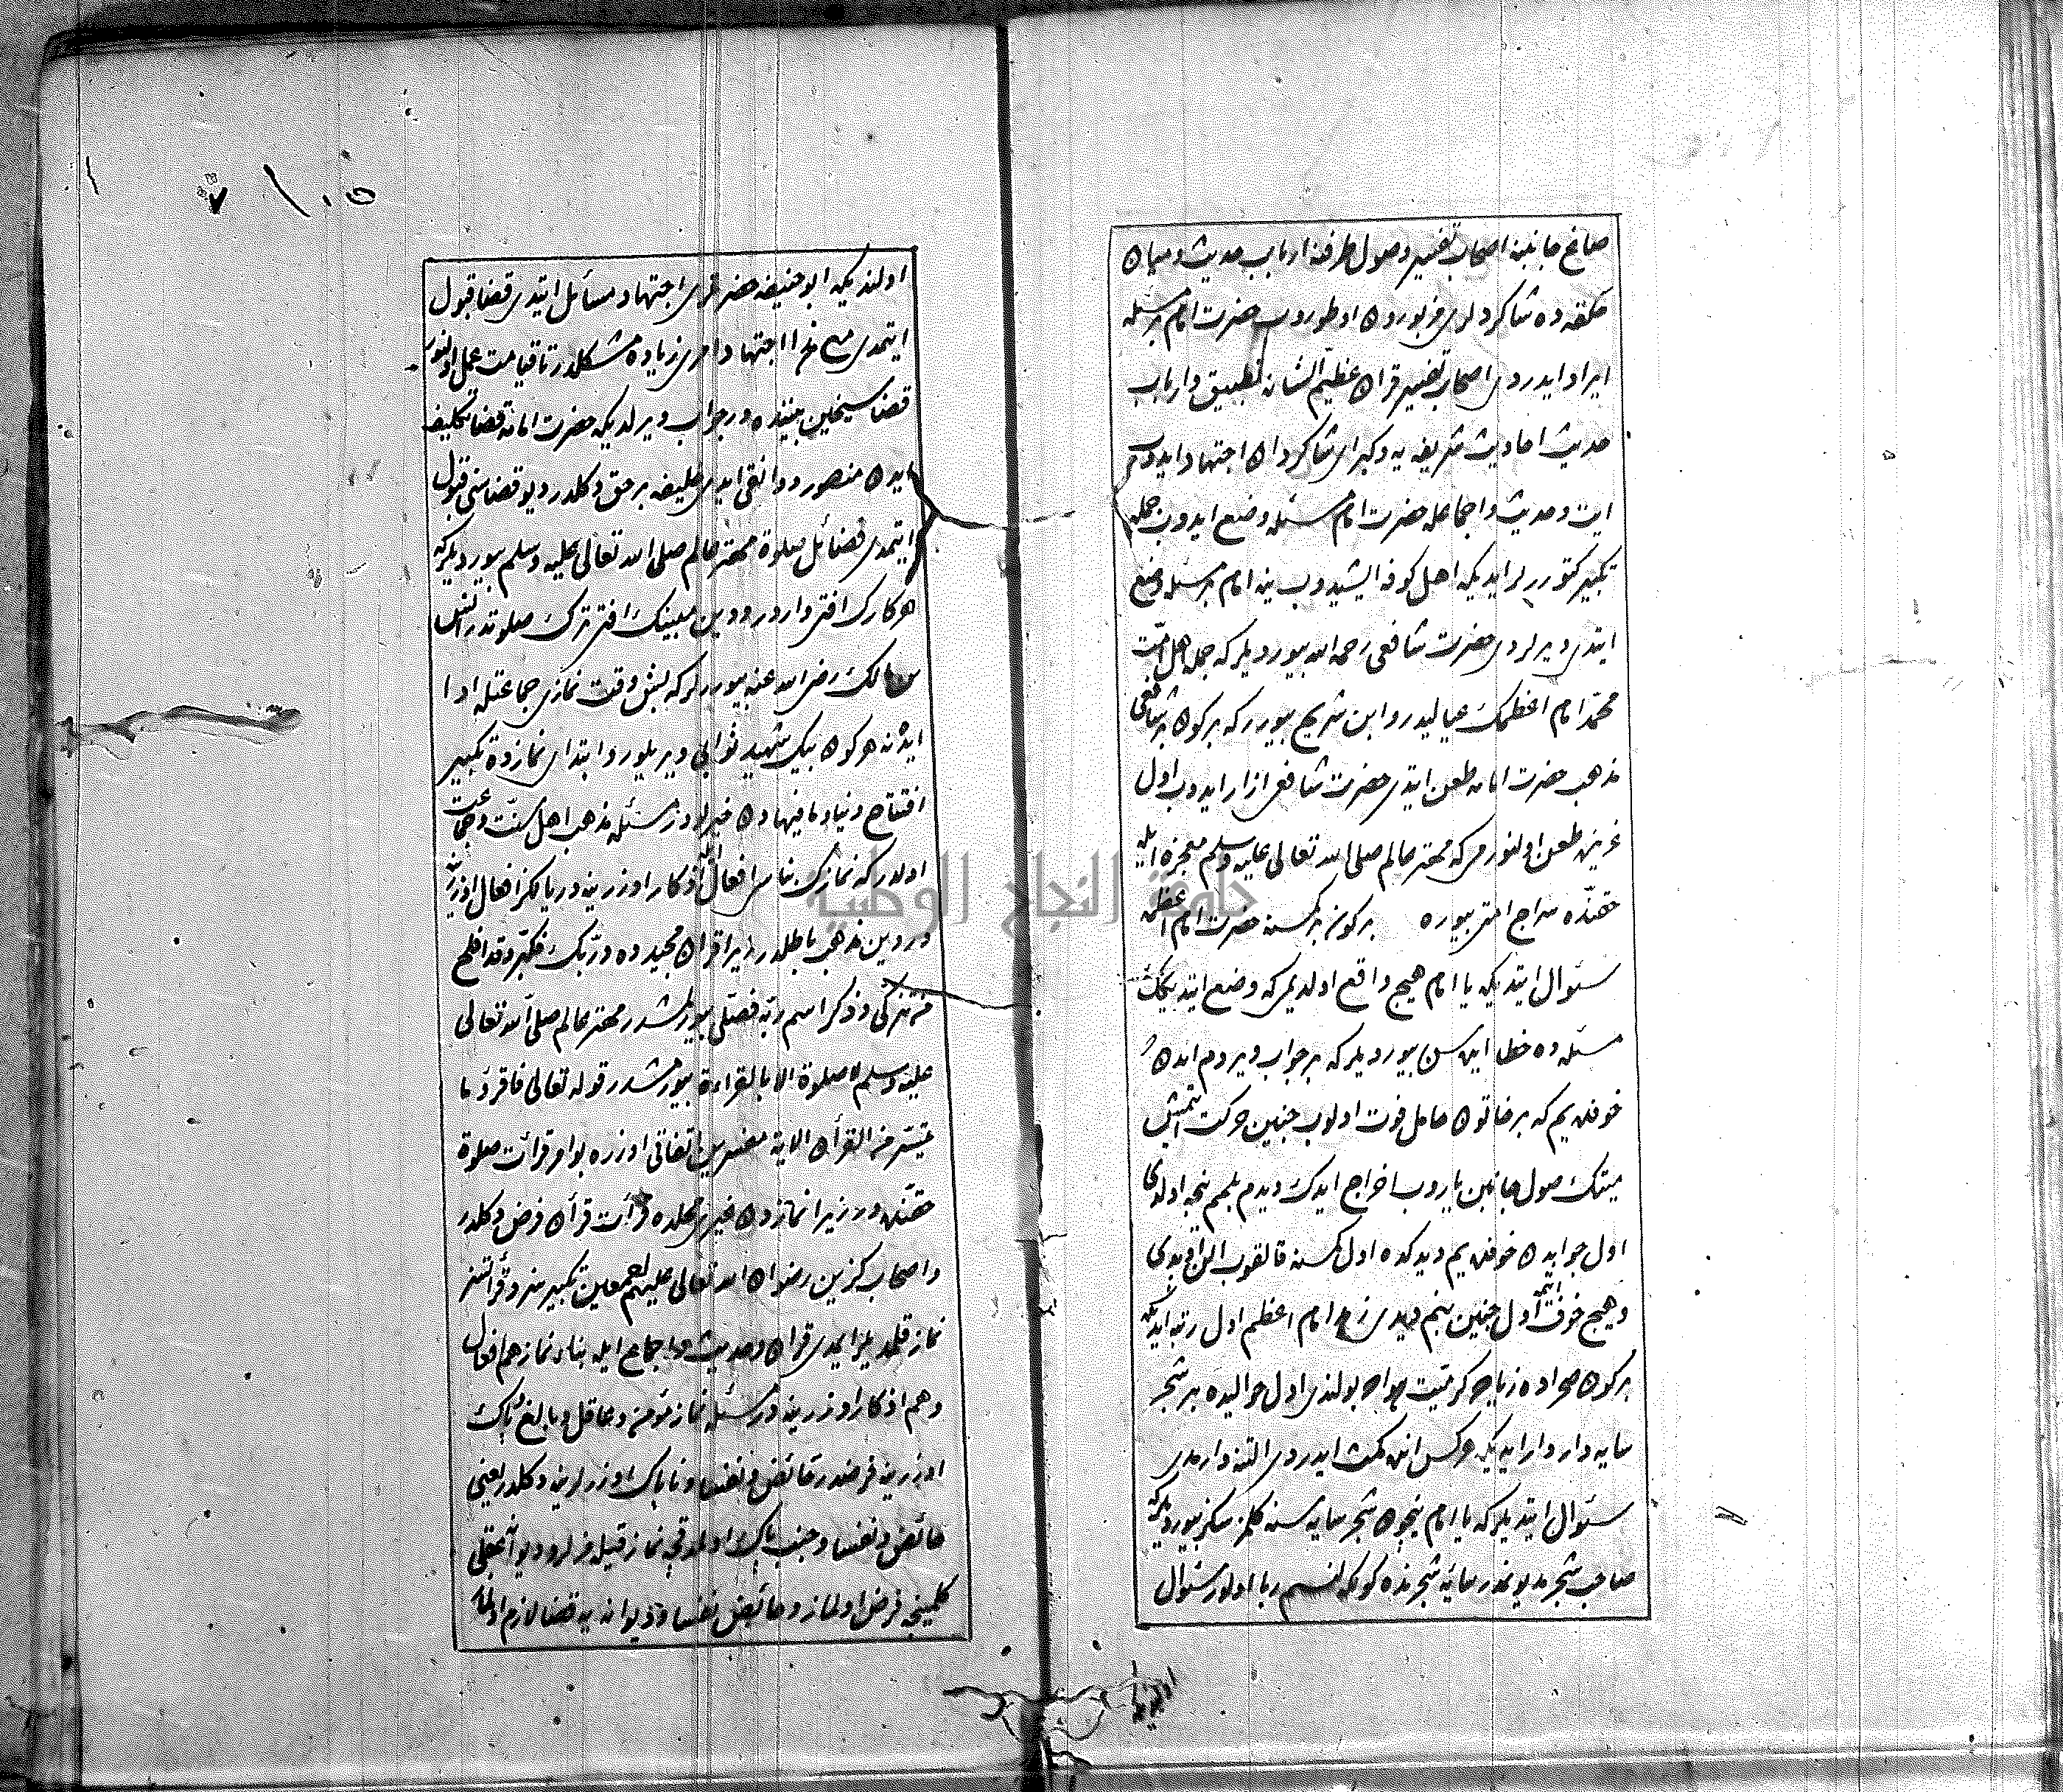 صاغ جانبنه اصحاب تفسیر وصول طرفنه ارباب حدیث و میان
حلقه ده شاکردلری مزبوردن اوطوروب حضرت امام بر مسئله
ایراد ایدردی اصحاب تفسیر قران عظیم الشانه تطبیق و ارباب
حدیث احادیث شریفه یه و کبرای شاکردان اجتهاد ایدوب
ایت و حدیث و اجماعله حضرت امام مسئله وضع ایدوب جمله
تکبیر کتوررلر ایدیکه اهل کوفه ایشیدوب ینه امام بر مسئله وضع
ایتدی دیرلردی حضرت شافعی رحمه الله بیوردیلر که جمله اهل امت
محمد امام اعظمک عیالیدر و ابن شریح بیورر که بر کون بر شافعی
مذهب حضرت امامه طعن ایتدی حضرت شافعی ازار ایدوب اول
عزیزه طعن اولنورمی که مهتر عالم صلی الله تعالی علیه وسلم معجزه ایله
حقنده سراج امتی بیوره بر کون بر کسنه حضرت امام اعظمه
سئوال ایتدیکه یا امام هیچ واقع اولدیمی که وضع ایتدیکک
مسئله ده خطا ایده سن بیوردیلر که بر جواب ویردم اندن
خوفده یم که بر خاتون حامل فوت اولوب جنین حرکت ایتمش
میتک صول جانبن یاروب اخراج ایدک دیدم بلمم نیجه اولدی
اول جوابدن خوفده یم دیدکده اول کسنه قالقوب الن اوپدی
و هیچ خوف ایتمه اول جنین بنم دیدی زهد امام اعظم اول رتبه ایدیکه
بر کون صحراده زیاده حرکتیت هوا بولندی اول حوالیده بر شجر
سایه دار وار ایدیکه هر کس انده مکث ایدردی التنه وارمدی
سئوال ایتدیلر که یا امام نیچون شجر سایه سنه کلمزسکز بیوردیلر که
صاحب شجره دیونمدر سایه شجرنده کولکه لنسم ربا اولور سئوال
اولندیکه
اولندیکه ابو حنیفه حضرتلری اجتهاد مسائل ایتدی قضا قبول
ایتمدی مع هذا اجتهاد امری زیاده مشکلدر تا قیامت عمل اولنور
قضا شیخین بیننده در جواب ویرلدیکه حضرت امامه قضا تکلیف
ایدن منصور دوانقی ایدی خلیفه بر حق دکلدر دیو قضاسنی قبول
ایتمدی فضائل صلوة مهتر عالم صلی الله تعالی علیه وسلم بیوردیلر که
هر کارک افتی واردر و دین مبینک افتی ترک صلوتدر انس
بن مالک رضی الله عنه بیوررلر که بش وقت نمازی جماعتله ادا
ایدنه هر کون بیک شهید ثوابی ویریلور و ابتدای نمازده تکبیر
افتتاح دنیا و مافیهادن خیرلودر مسئله مذهب اهل سنت و جماعت
اولدر که نمازک بناسی افعال و اذکار اوزرینه در یالکز افعال اوزرینه
در دین مذهب باطلدر زیرا قران مجیدده و ربک فکبر و قد افلح
من تزکی و ذکر اسم ربه فصلی بیورلمشدر مهتر عالم صلی الله تعالی
علیه وسلم لا صلوة الا بالقراءة بیورمشدر قوله تعالی فاقرؤا ما
تیسر من القرأن الایة مفسرین اتفاقی اوزره بو امر قرائت صلوة
حقنده در زیرا نمازدن غیری محلده قرأت قرأن فرض دکلدر
و اصحاب کزین رضوان الله تعالی علیهم اجمعین تکبیرسز و قرأتسز
نماز قلمدیلر ایمدی قران و حدیث و اجماع ایله بناء نماز هم افعال
و هم اذکار اوزرینه در مسئله نماز مؤمن و عاقل و بالغ و پاک
اوزرینه فرضدر حائض و نفسا و ناپاک اوزرلرینه دکلدر یعنی
حائض و نفسا و جنب پاک اولمدقجه نماز قیلمزلر و دیوانه عقلی
کلمینجه فرض اولماز و حائض و نفسا و دیوانه یه قضا لازم اولماز
١٠٥
جامعة النجاح الوطنية